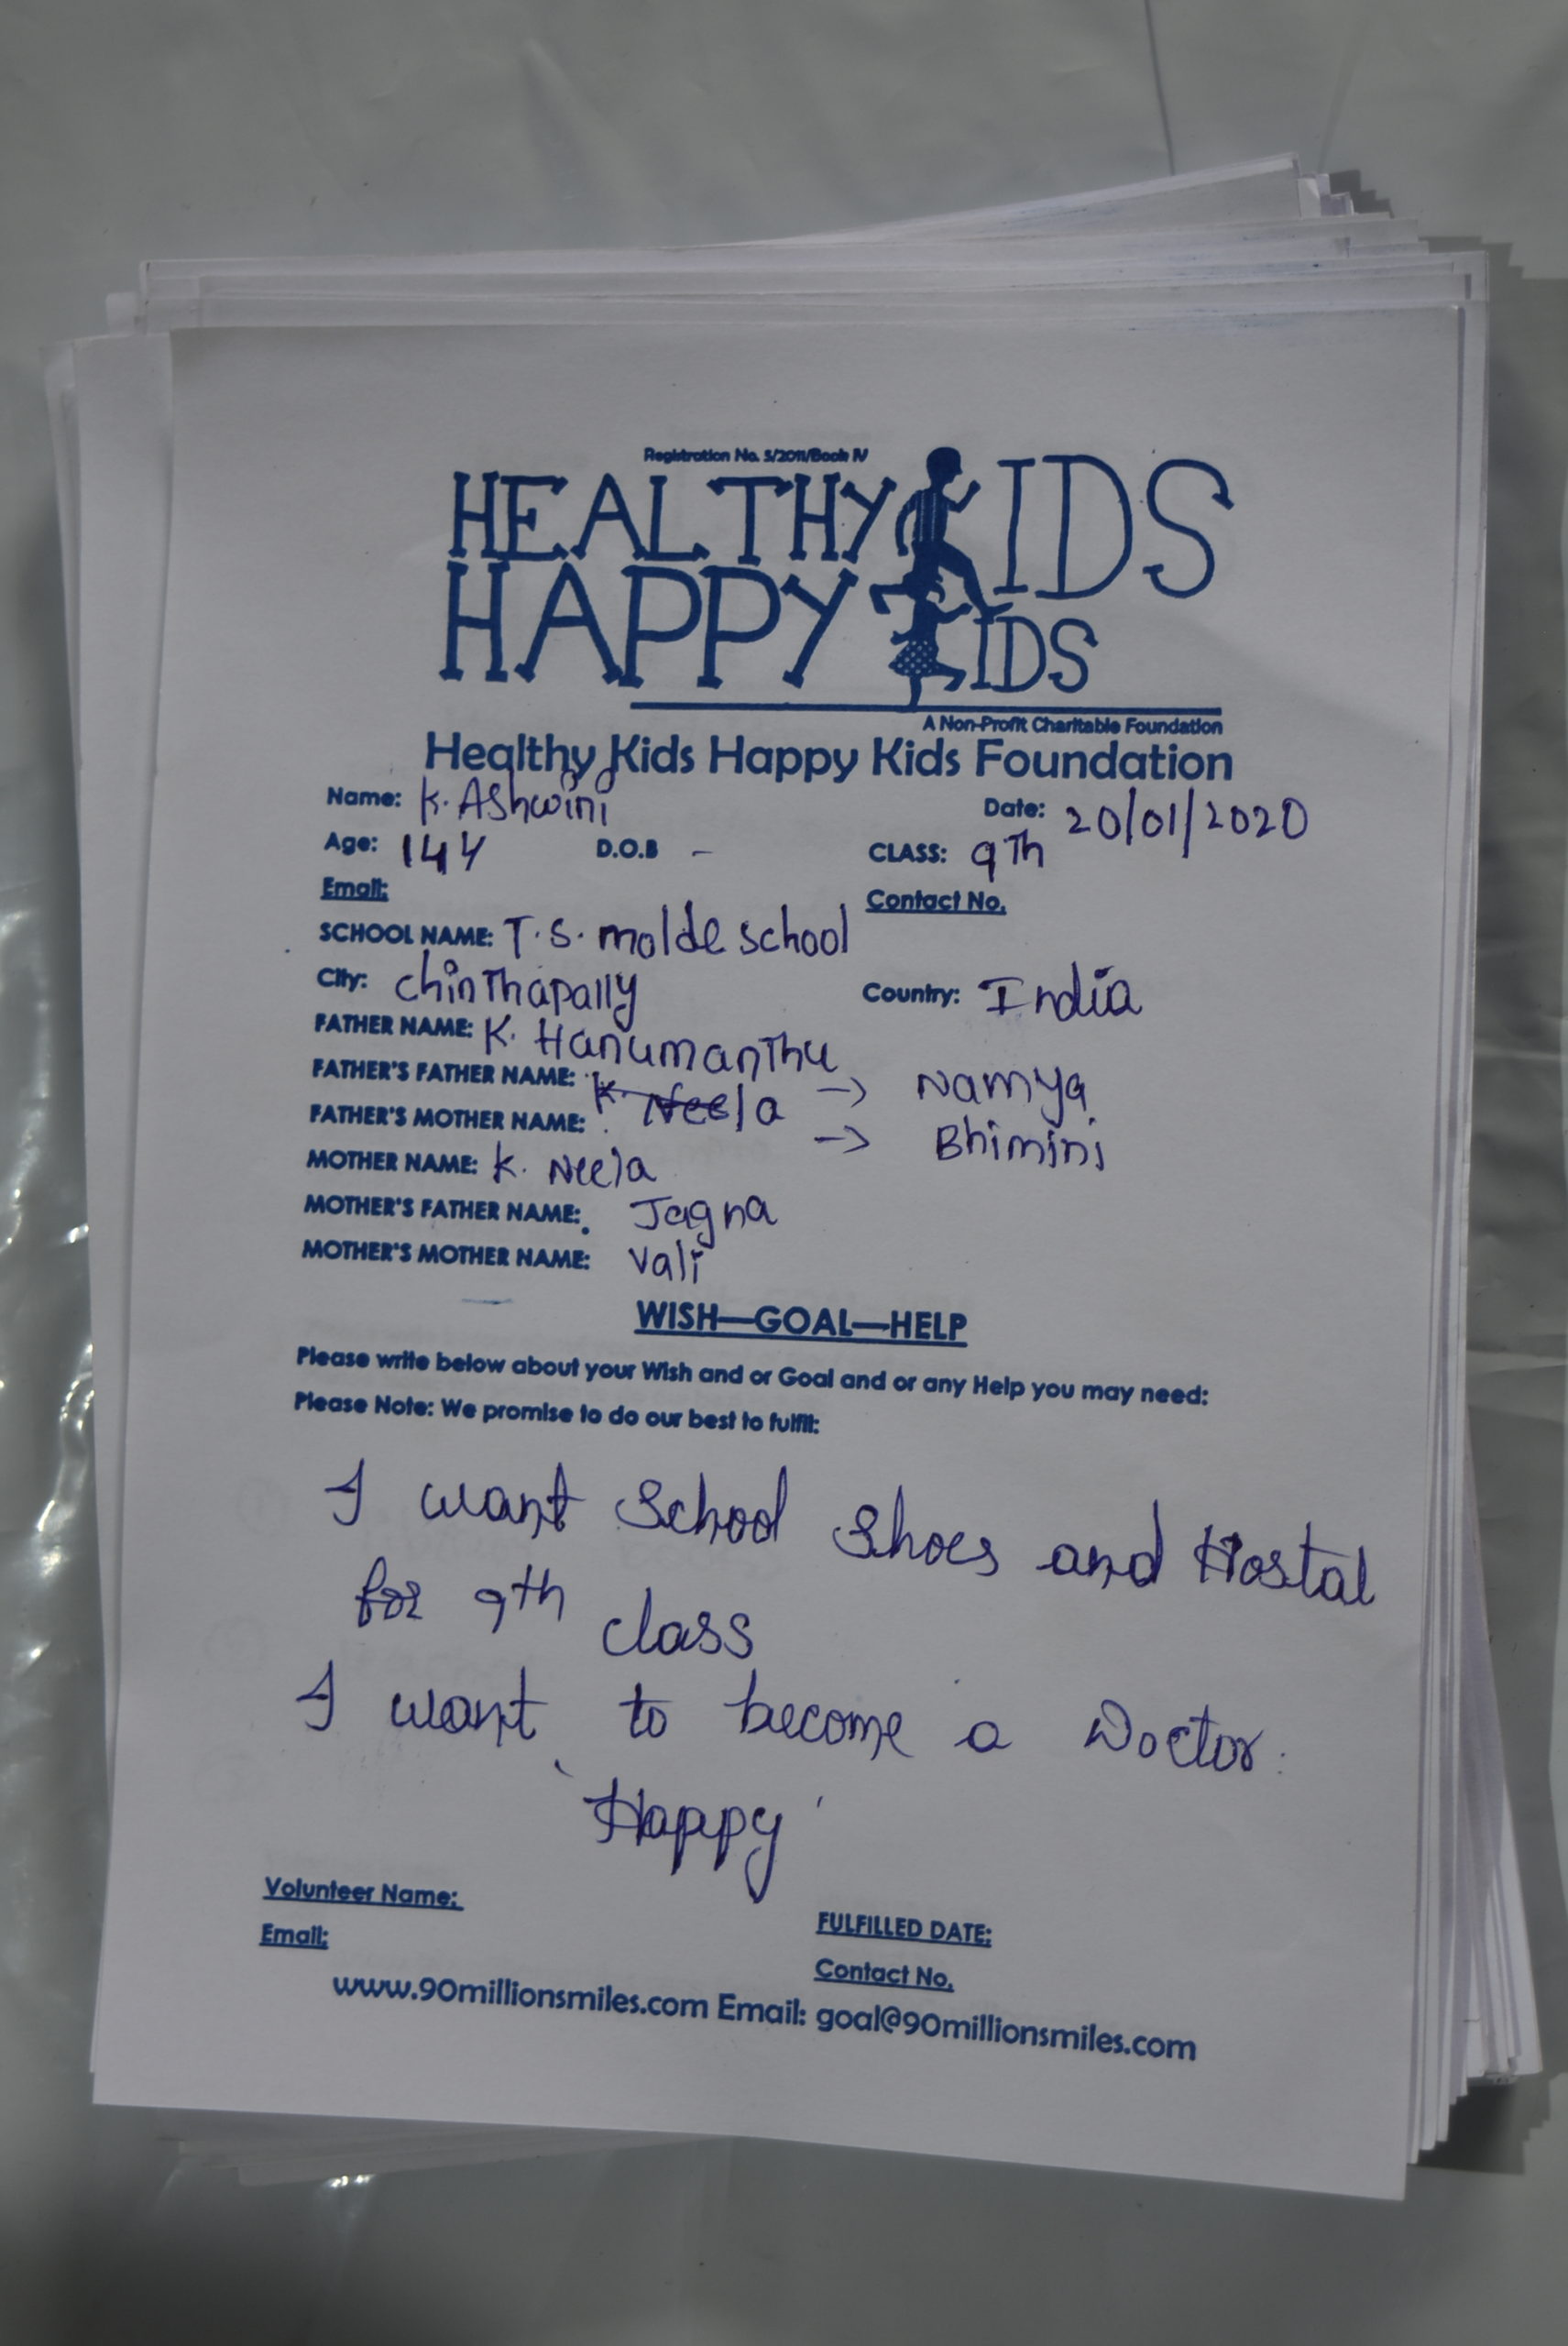 Registration No. 5/2011/Book IV
HEALTHY KIDS
HAPPY KIDS
A Non-Profit Charitable Foundation
Healthy Kids Happy Kids Foundation
Name: K. Ashwini Date: 20/01/2020
Age: 14 Y D.O.B - CLASS: 9Th
Email: Contact No.
SCHOOL NAME: T.S. molde school
City: chinThapally Country: India
FATHER NAME: K. HanumanThu
FATHER'S FATHER NAME: K. Neela → Namya
FATHER'S MOTHER NAME: → Bhimini
MOTHER NAME: K. Neela
MOTHER'S FATHER NAME: Jagna
MOTHER'S MOTHER NAME: Vali
WISH—GOAL—HELP
Please write below about your Wish and or Goal and or any Help you may need:
Please Note: We promise to do our best to fulfil:
I want School Shoes and Hostal
for 9th class
I want to become a Doctor.
'Happy'
Volunteer Name: FULFILLED DATE:
Email: Contact No.
www.90millionsmiles.com Email: goal@90millionsmiles.com